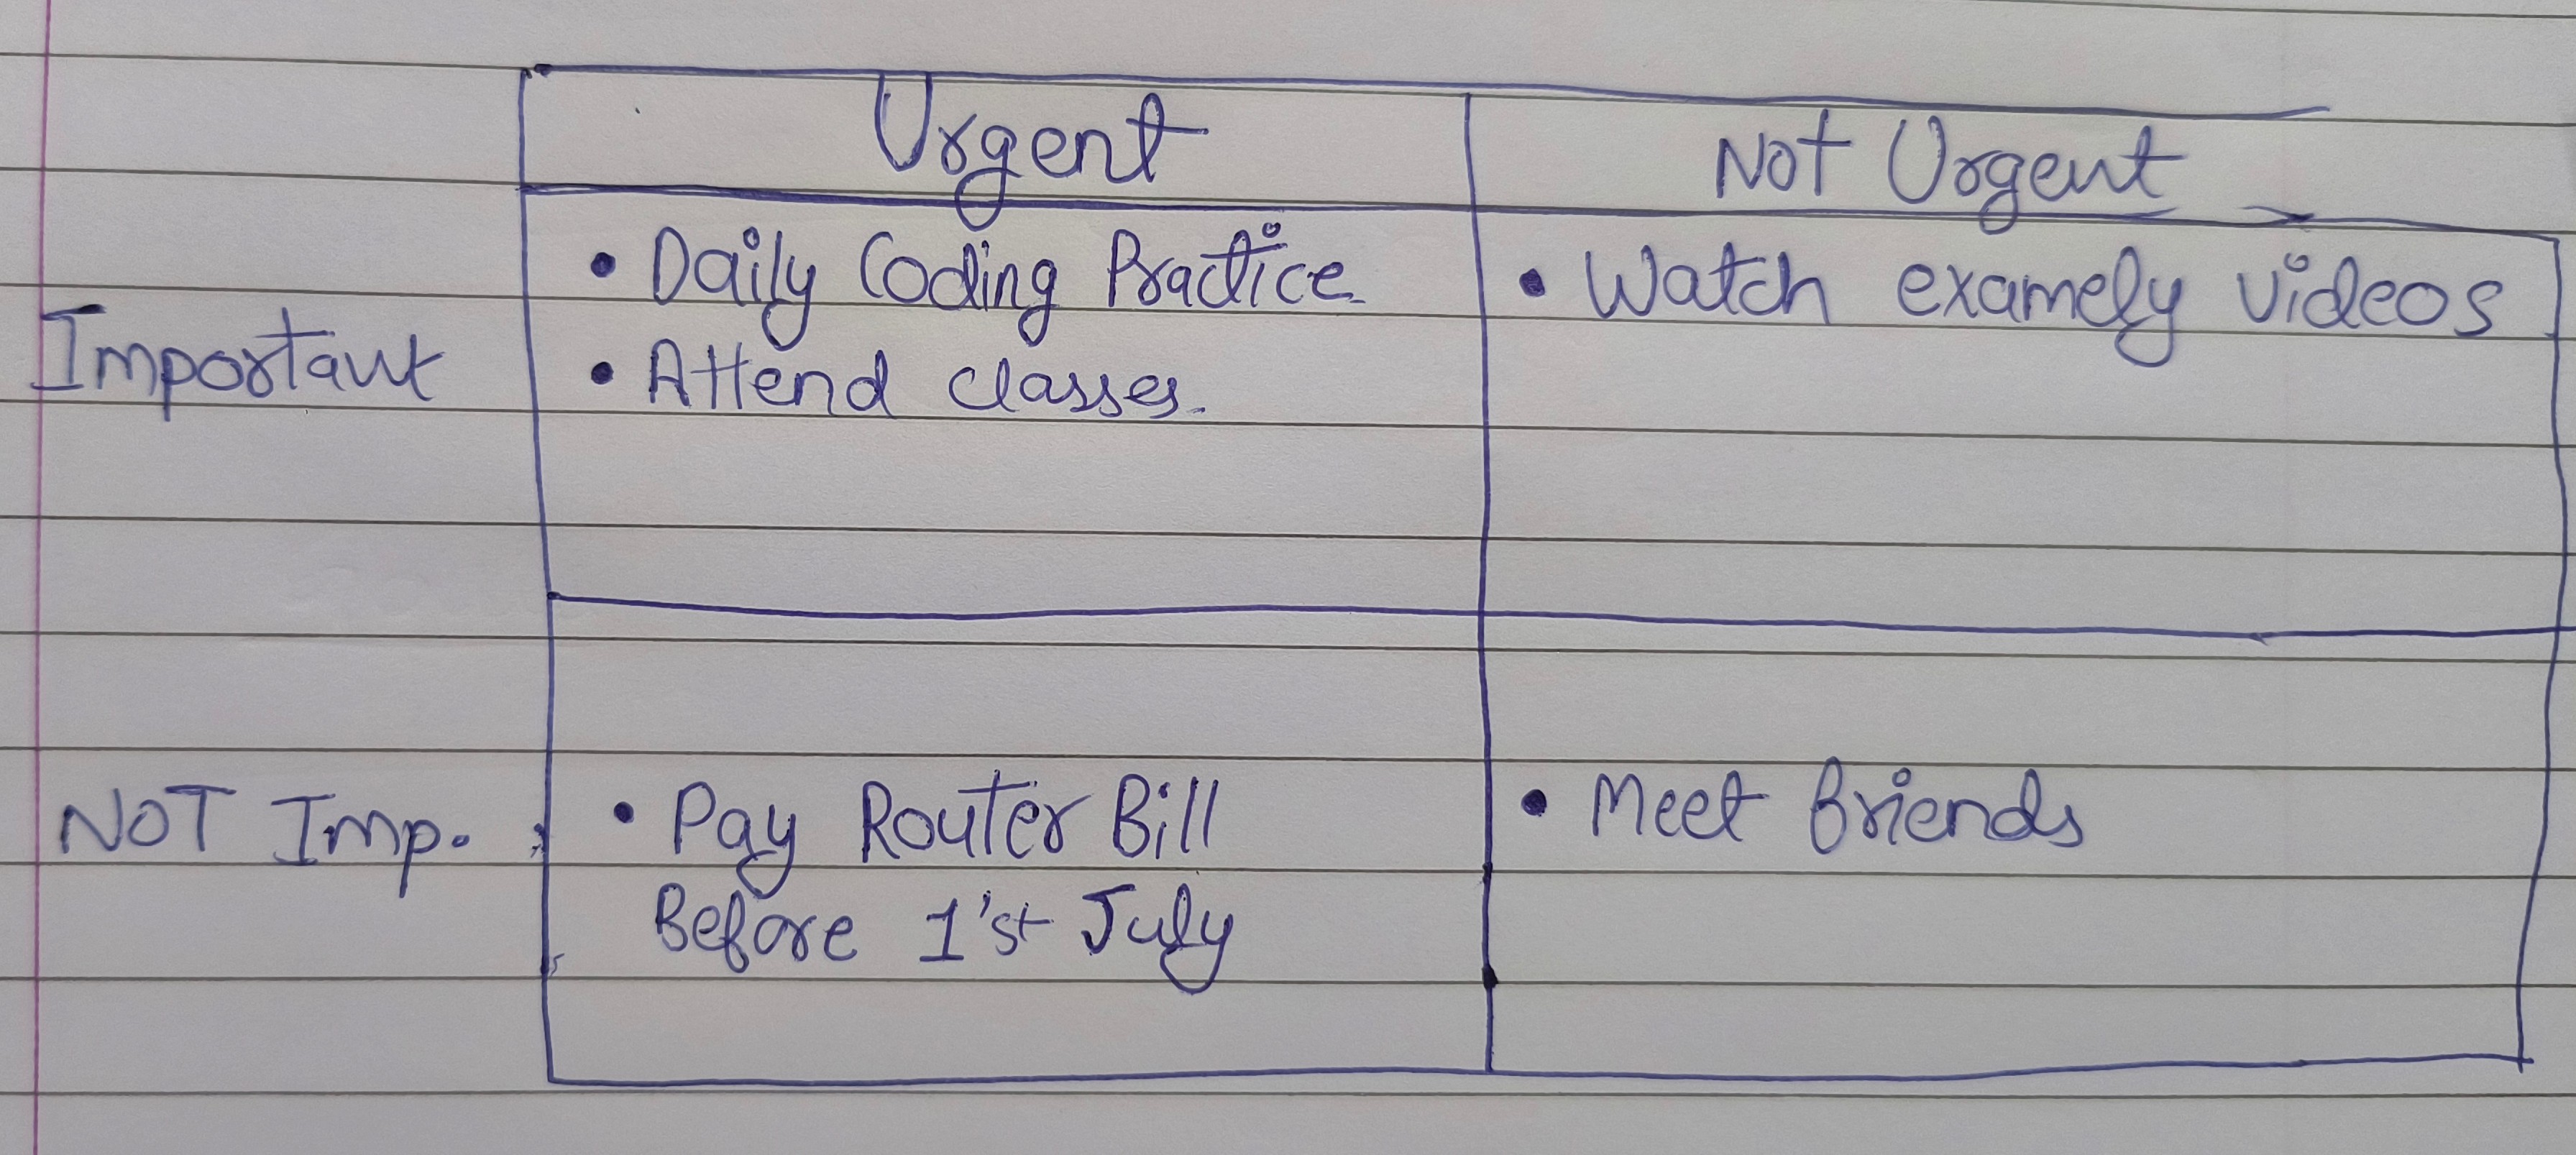 Urgent
Not Urgent
Important
• Daily Coding Practice
• Attend classes.
• Watch examely videos
NOT Imp.
• Pay Router Bill
Before 1'st July
• Meet friends